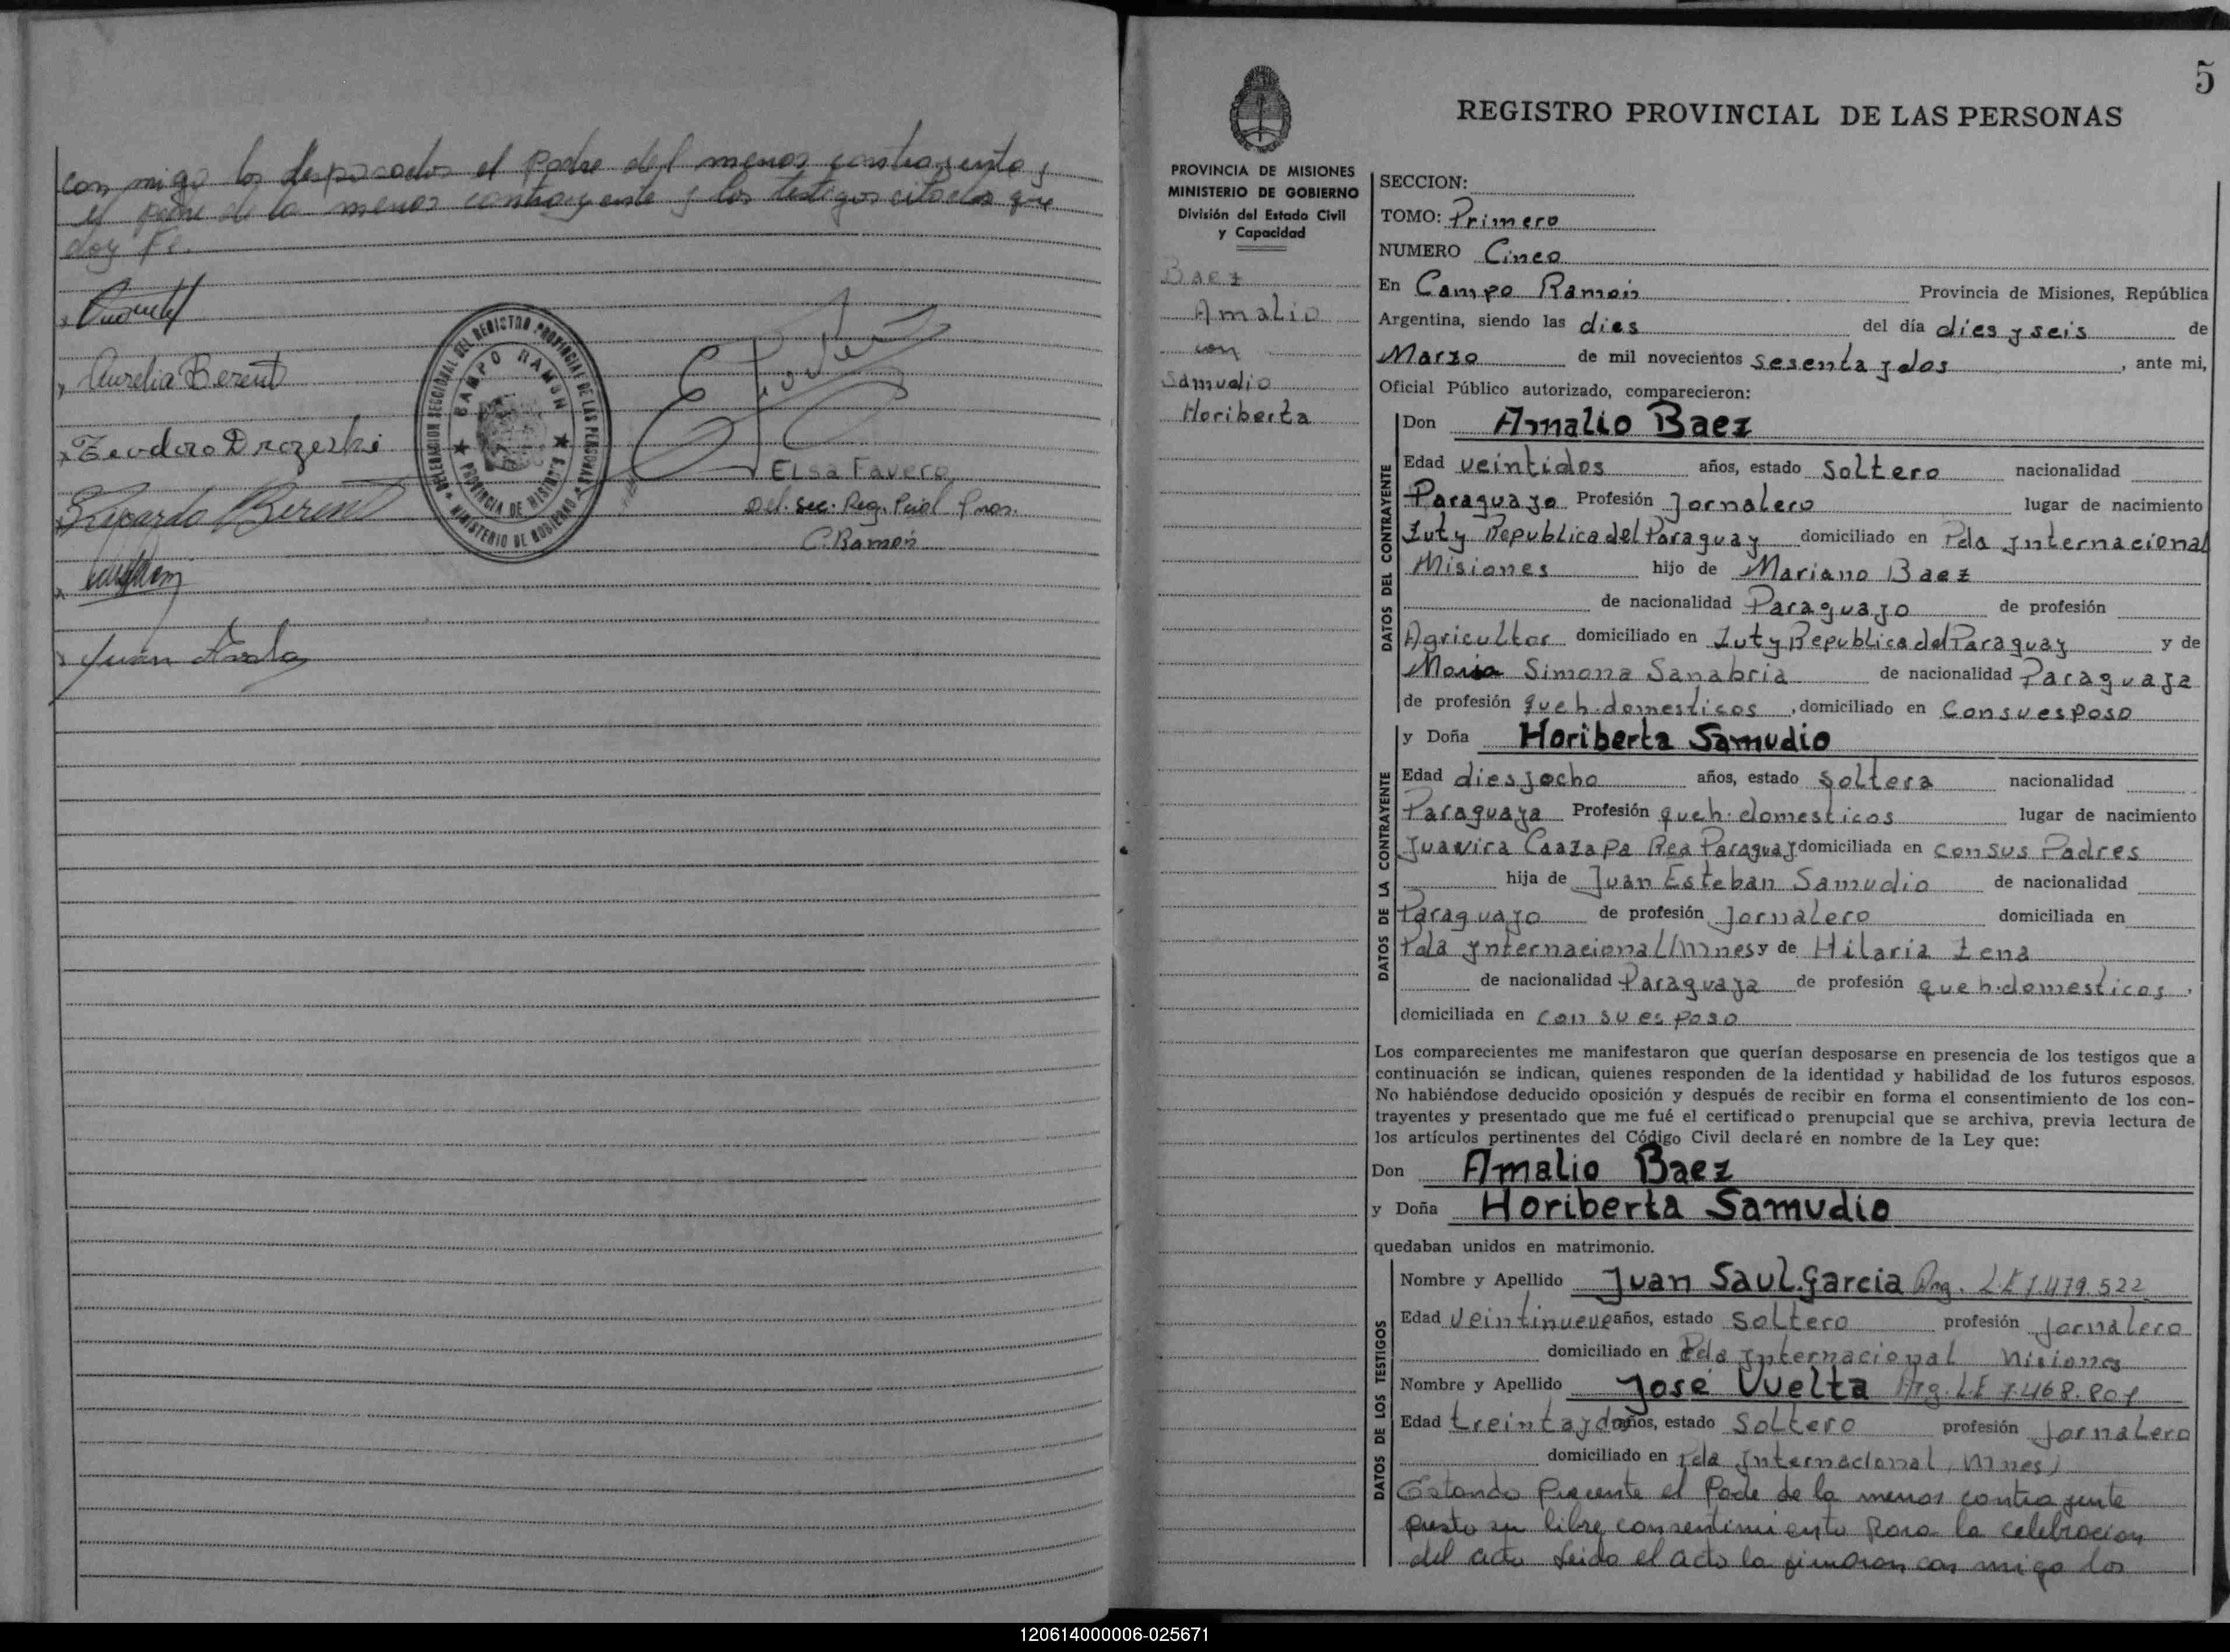 con migo los desposados el padre del menor contrayente y
el padre de la menor contrayente y los testigos citados que
doy Fe.
Aurelia Berent
Teodoro Drozeski
Ricardo Berent
Juan
DELEGACION SECCIONAL DEL REGISTRO PROVINCIAL DE LAS PERSONAS
CAMPO RAMON
PROVINCIA DE MISIONES
MINISTERIO DE GOBIERNO
Elsa Favero
Del. Sec. Reg. Pcial Pnas.
C. Ramón
5
REGISTRO PROVINCIAL DE LAS PERSONAS
PROVINCIA DE MISIONES
MINISTERIO DE GOBIERNO
División del Estado Civil
y Capacidad
Baez
Amalio
con
Samudio
Horiberta
SECCION:
TOMO: Primero
NUMERO Cinco
En Campo Ramón Provincia de Misiones, República
Argentina, siendo las dies del día dies y seis de
Marzo de mil novecientos sesenta y dos, ante mi,
Oficial Público autorizado, comparecieron:
DATOS DEL CONTRAYENTE
Don Amalio Baez
Edad veintidos años, estado Soltero nacionalidad
Paraguayo Profesión Jornalero lugar de nacimiento
Yuty Republica del Paraguay domiciliado en Pda Internacional
Misiones hijo de Mariano Baez
de nacionalidad Paraguayo de profesión
Agricultor domiciliado en Yuty Republica del Paraguay y de
Maria Simona Sanabria de nacionalidad Paraguaya
de profesión queh. domesticos, domiciliado en Con su esposo
DATOS DE LA CONTRAYENTE
y Doña Horiberta Samudio
Edad dies y ocho años, estado Soltera nacionalidad
Paraguaya Profesión queh. domesticos lugar de nacimiento
Juavira Caazapa Rea Paraguay domiciliada en con sus Padres
hija de Juan Esteban Samudio de nacionalidad
Paraguayo de profesión Jornalero domiciliada en
Pda Internacional Mnes y de Hilaria Zena
de nacionalidad Paraguaya de profesión queh. domesticos,
domiciliada en con su esposo
Los comparecientes me manifestaron que querían desposarse en presencia de los testigos que a
continuación se indican, quienes responden de la identidad y habilidad de los futuros esposos.
No habiéndose deducido oposición y después de recibir en forma el consentimiento de los con-
trayentes y presentado que me fué el certificado prenupcial que se archiva, previa lectura de
los artículos pertinentes del Código Civil declaré en nombre de la Ley que:
Don Amalio Baez
y Doña Horiberta Samudio
quedaban unidos en matrimonio.
DATOS DE LOS TESTIGOS
Nombre y Apellido Juan Saul. Garcia Arg. L.E 7.479.522
Edad Veintinueve años, estado Soltero profesión Jornalero
domiciliado en Pda Internacional Misiones
Nombre y Apellido José Vuelta Arg. L.E 7.468.807
Edad treinta y dos años, estado Soltero profesión Jornalero
domiciliado en Pda Internacional, Mnes)
Estando Precente el Padre de la menor contrayente
presto su libre consentimiento para la celebracion
del acto Leido el acto la firmaron con migo los
120614000006-025671